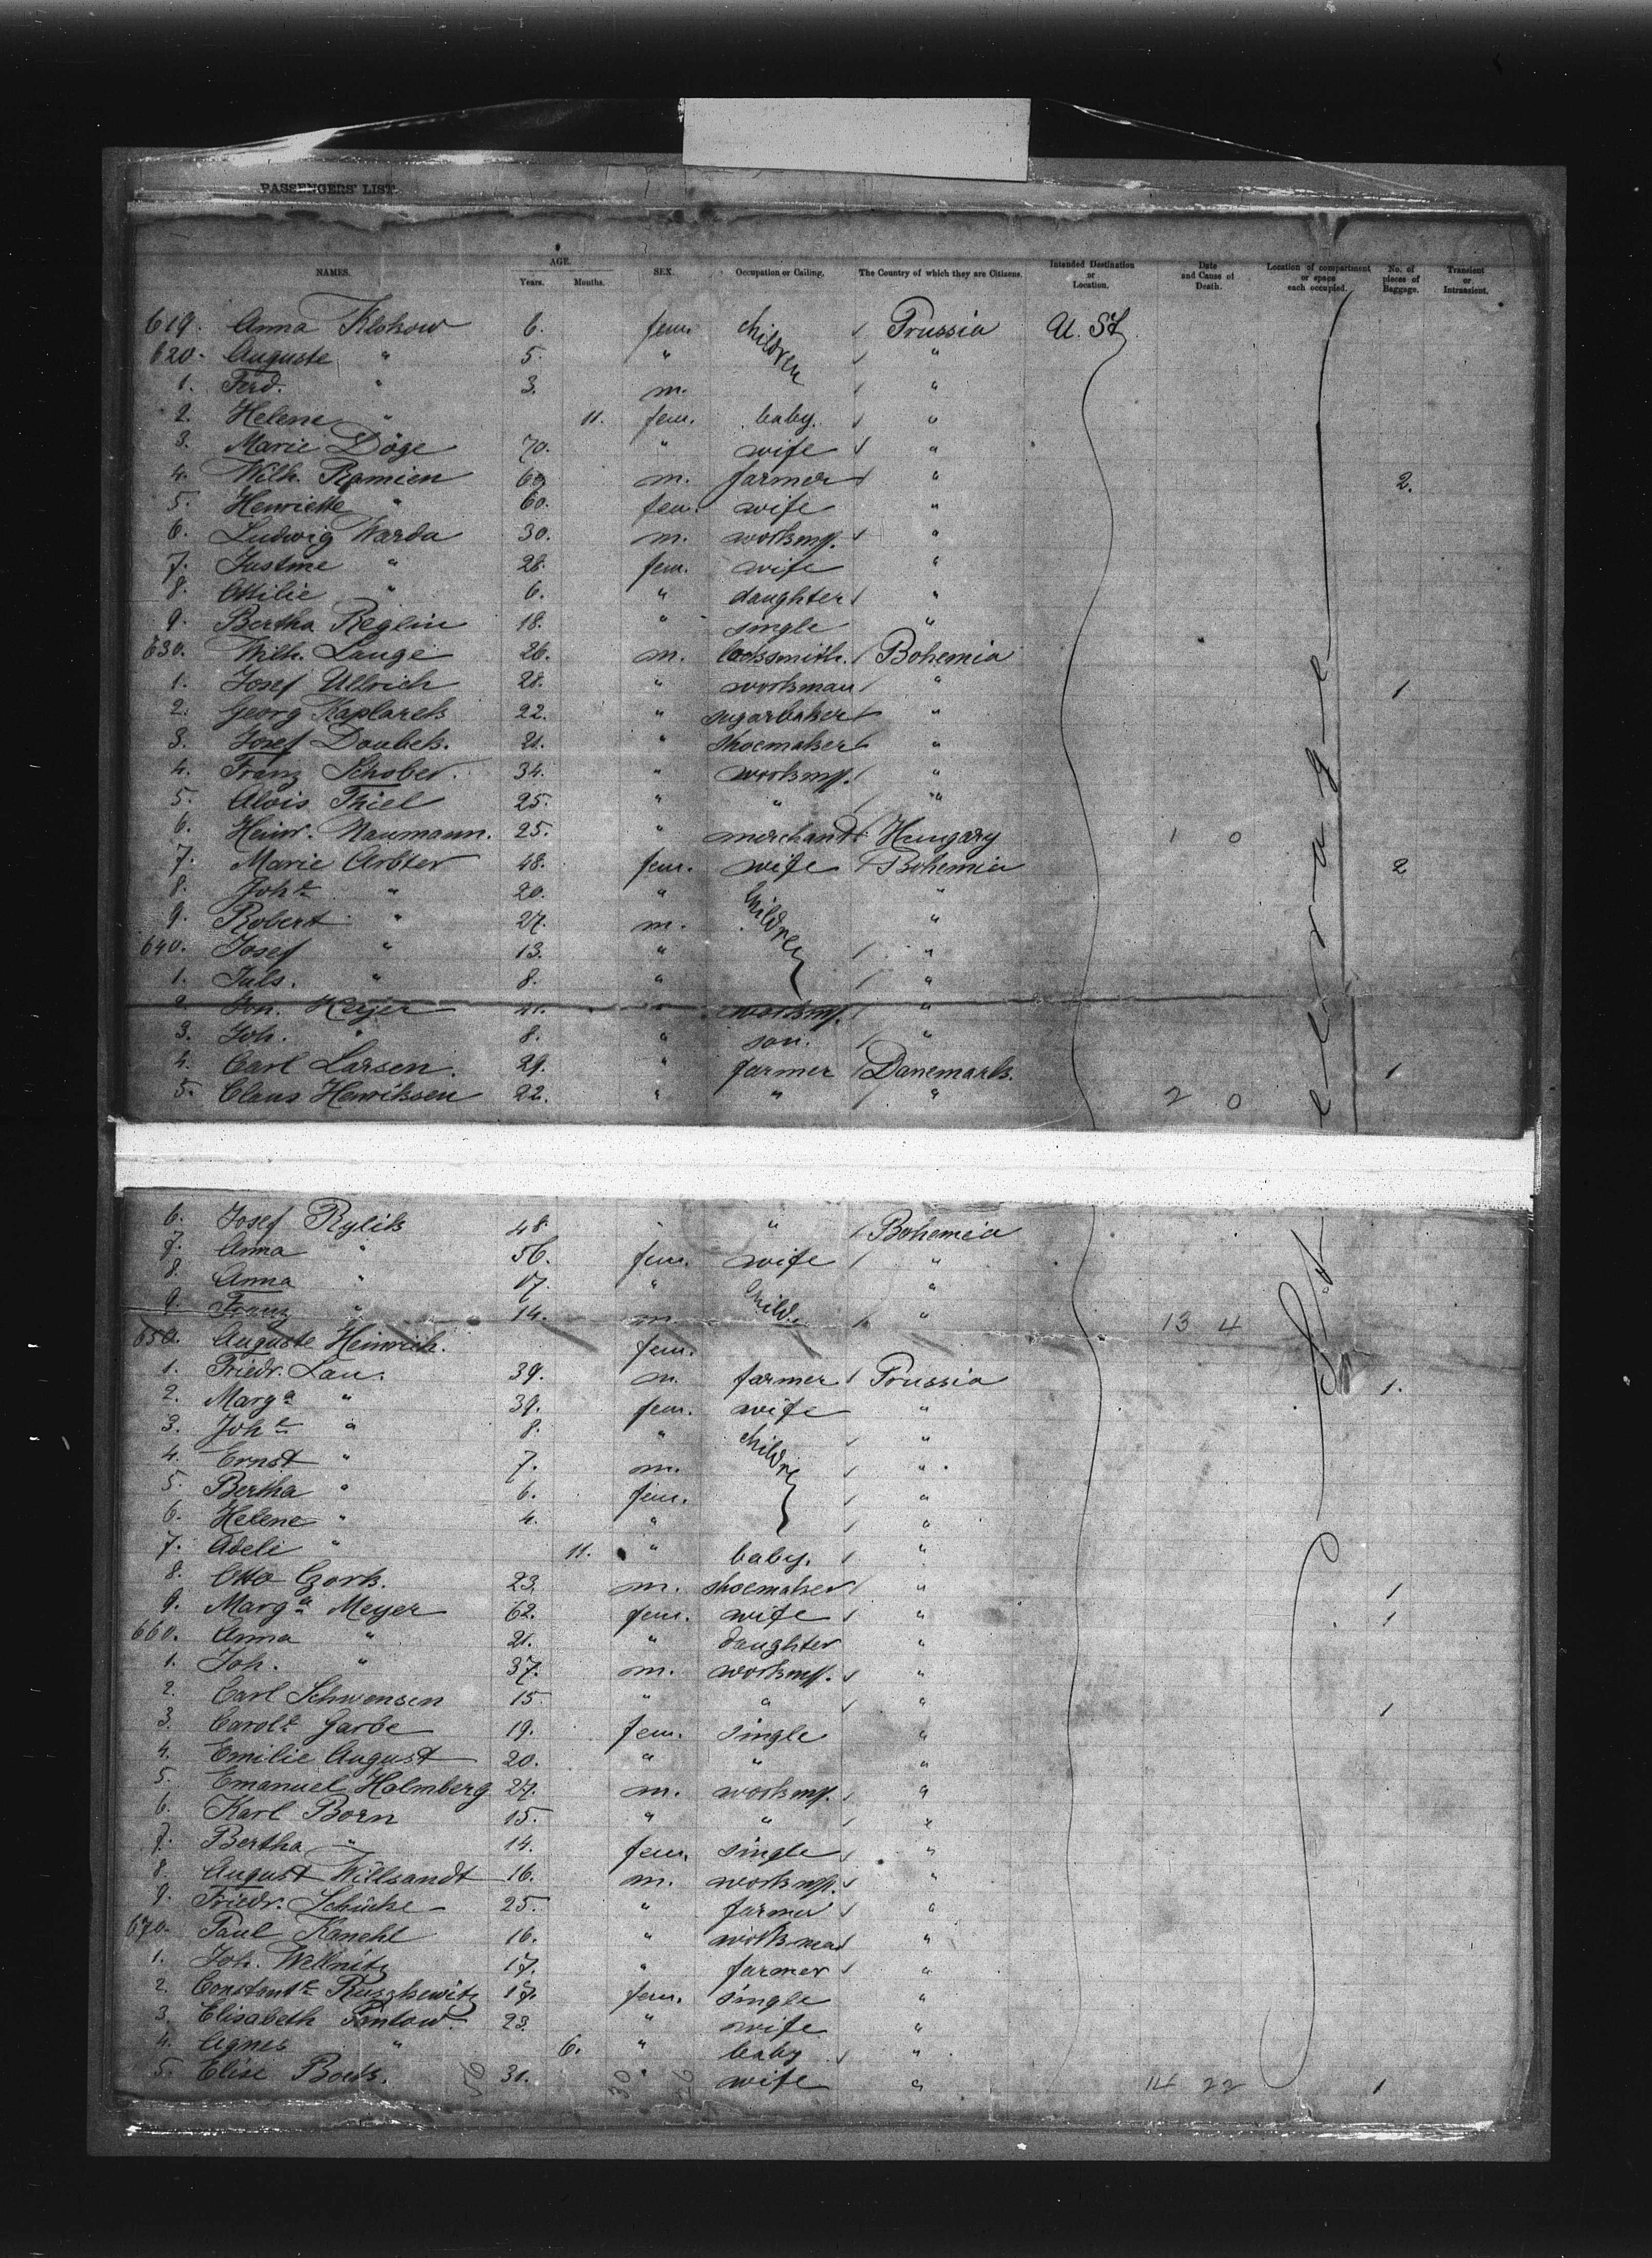 PASSENGERS' LIST.
NAMES. AGE. Years. Months. SEX. Occupation or Calling. The Country of which they are Citizens. Intended Destination or Location. Date and Cause of Death. Location of compartment or space each occupied. No. of pieces of Baggage. Transient or Intransient.
619. Anna Klokow 6. fem. children Prussia U. St.
620. Auguste " 5. " "
1. Ferd. " 3. m. "
2. Helene " 11. fem. baby. "
3. Marie Döge 70. " wife "
4. Wilh. Ramien 69 m. farmer " 2.
5. Henriette " 60. fem. wife "
6. Ludwig Warda 30. m. worksm. "
7. Justine " 28. fem. wife "
8. Ottilie " 6. " daughter "
9. Bertha Reglin 18. " single "
630. Wilh. Lange 26. m. locksmith. Bohemia
1. Josef Ullrich 28. " workman " 1
2. Georg Kaplarek 22. " sugarbaker "
3. Josef Doubek. 21. " shoemaker "
4. Franz Schober. 34. " worksm. "
5. Alois Thiel 25. " " "
6. Heinr. Naumann. 25. " merchand Hungary 1 0
7. Marie Arbter 48. fem. wife Bohemia 2
8. Johe " 20. " children "
9. Robert " 27. m. "
640. Josef " 13. " "
1. Juls. " 8. " "
2. Jon. Keyer 41. " worksm. "
3. Joh. " 8. " son. "
4. Carl Larsen. 29. " farmer Danemark. 1
5. Claus Henriksen 22. " " " 2 0
6. Josef Rylik 48. " " Bohemia
7. Anna " 56. fem. wife "
8. Anna " 17. " child. "
9. Franz " 14. m. " 13 4
650. Auguste Heinrich. fem.
1. Friedr. Lau. 39. m. farmer Prussia 1.
2. Marga " 39. fem. wife "
3. Johe " 8. " childre "
4. Ernst " 7. m. "
5. Bertha " 6. fem. "
6. Helene " 4. " "
7. Adeli " 11. " baby. "
8. Otto Gork. 23. m. shoemaker " 1
9. Marga Meyer 62. fem. wife " 1
660. Anna " 21. " daughter "
1. Joh. " 37. m. worksm. "
2. Carl Schwensen 15 " " " 1
3. Carole Garbe 19. fem. single "
4. Emilie August 20. " " "
5. Emanuel Holmberg 27. m. worksm. "
6. Karl Born 15. " " "
7. Bertha " 14. fem. single "
8. August Willsandt 16. m. worksm. "
9. Friedr. Schücke 25. " farmer "
670. Paul Kanehl 16. " workman "
1. Joh. Wellnitz 17. " farmer "
2. Constante Ruszkewitz 17. fem. single "
3. Elisabeth Pantow. 23. " wife "
4. Agnes " 6. " baby "
5. Elise 31. " wife " 14 22 1
56 30 26